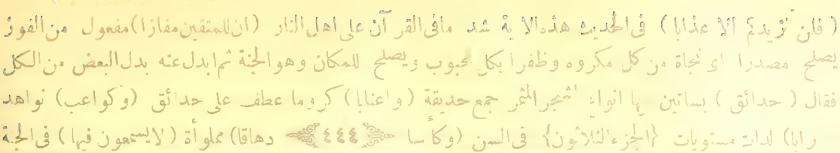 (فلن نزيدكم الا عذابا) فى الحديث هذه الاية اشد مافى القرآن على اهل النار (ان للمتقين مفازا) مفعول من الفوز
يصلح مصدرا اى نجاة من كل مكروه وظفرا بكل محبوب ويصلح للمكان وهو الجنة ثم ابدل عنه بدل البعض من الكل
فقال (حدائق) بساتين فيها انواع الشجر المثمر جمع حديقة (واعنابا) كروما عطف على حدائق (وكواعب) نواهد
(اترابا) لدات مستويات {الجزء الثلاثون} فى السن (وكأسا ٤٤٤ دهاقا) مملوأة (لايسمعون فيها) فى الجنة